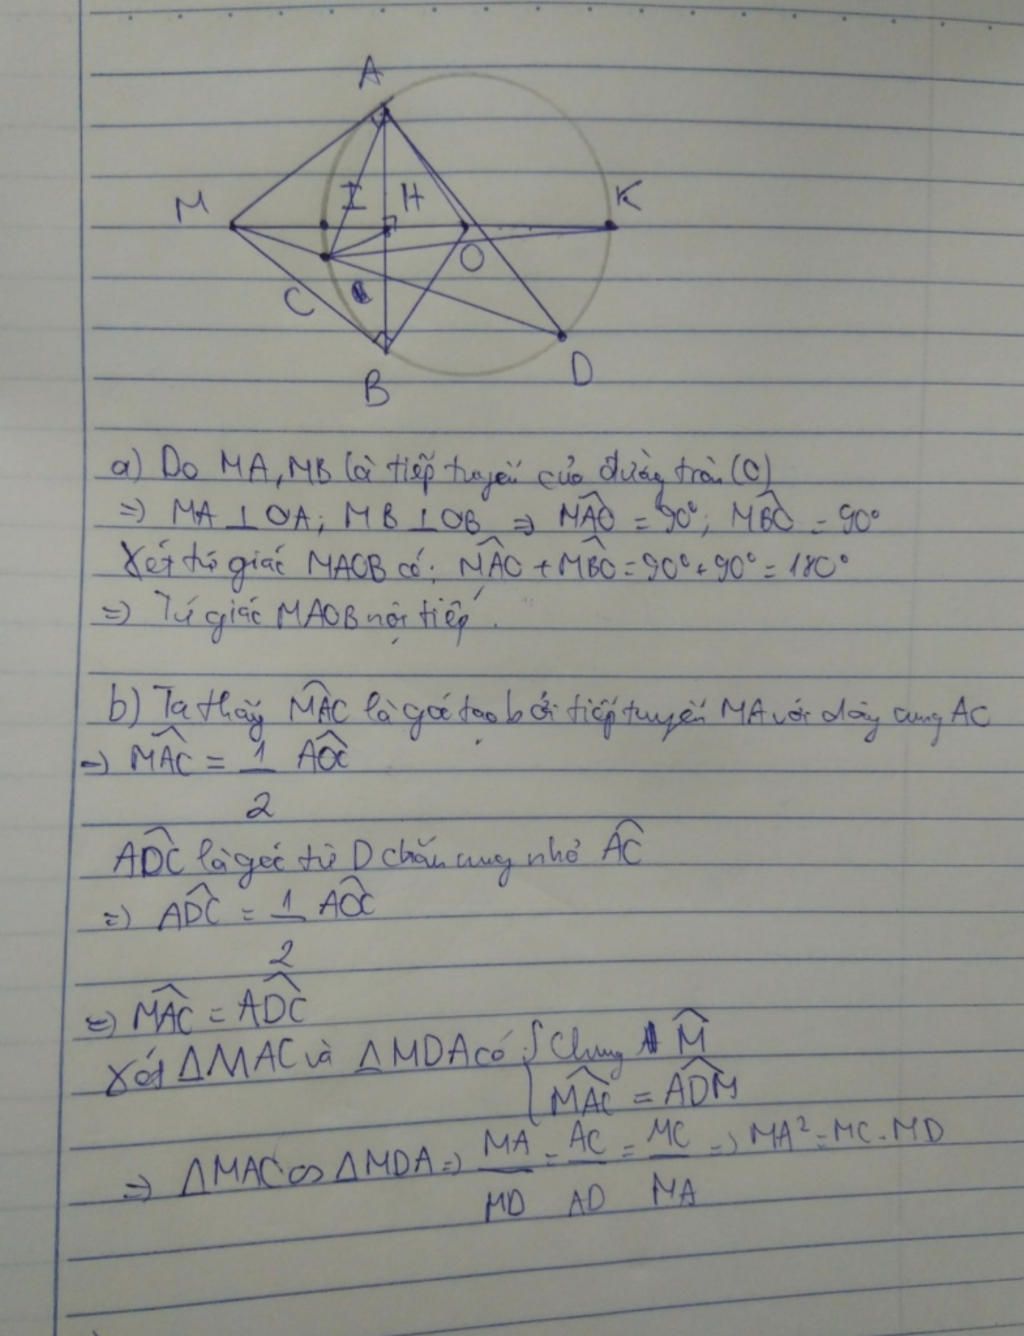 A
M
I
H
K
O
C
D
B
a) Do MA, MB là tiếp tuyến của đường tròn (O)
=> MA ⊥ OA; MB ⊥ OB => \widehat{MAO} = 90°; \widehat{MBO} = 90°
Xét tứ giác MAOB có: \widehat{MAO} + \widehat{MBO} = 90° + 90° = 180°
=> Tứ giác MAOB nội tiếp.
b) Ta thấy \widehat{MAC} là góc tạo bởi tiếp tuyến MA với dây cung AC
=> \widehat{MAC} = \frac{1}{2} \widehat{AOC}
\widehat{ADC} là góc từ D chắn cung nhỏ \widehat{AC}
=> \widehat{ADC} = \frac{1}{2} \widehat{AOC}
=> \widehat{MAC} = \widehat{ADC}
Xét ΔMAC và ΔMDA có { Chung \widehat{M}
\widehat{MAC} = \widehat{ADM}
=> ΔMAC ∽ ΔMDA => \frac{MA}{MD} = \frac{AC}{AD} = \frac{MC}{MA} => MA² = MC . MD